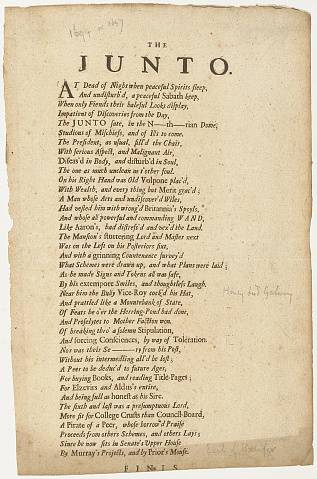 THE
JUNTO.
AT Dead of Night when peaceful Spirits sleep,
And undisturb'd, a peaceful Sabath keep,
When only Fiends their baleful Looks display,
Impatient of Discoveries from the Day,
The JUNTO sate, in the N—th—rian Dome,
Studious of Mischiefs, and of Ills to come.
The President, as usual, fill'd the Chair,
With serious Aspect, and Malignant Air,
Diseas'd in Body, and disturb'd in Soul,
The one as much unclean as t'other foul.
On his Right Hand was Old Volpone plac'd,
With Wealth, and every thing but Merit grac'd;
A Man whose Arts and undiscover'd Wiles,
Had nested him with wrong'd Britannia's Spoyls,
And whose all powerful and commanding WAND,
Like Aaron's, had distress'd and vex'd the Land.
The Mansion's stuttering Lord and Master next
Was on the Left on his Posteriors fixt,
And with a grinning Countenance survey'd
What Schemes were drawn up, and what Plans were laid;
As he made Signs and Tokens all was safe,
By his extempore Smiles, and thoughtless Laugh.
Near him the Bully Vice-Roy cock'd his Hat,
And prattled like a Mountebank of State,
Of Feats he o'er the Herring-Pond had done,
And Proselytes to Mother Faction won.
Of breaking thro' a solemn Stipulation,
And forcing Consciences, by way of Toleration.
Nor was their Se——ry from his Post,
Without his intermedling all'd be lost;
A Peer to be deduc'd to future Ages,
For buying Books, and reading Title-Pages;
For Elzevirs and Aldus's entire,
And being full as honest as his Sire.
The sixth and last was a presumptuous Lord,
More fit for College Crusts than Council-Board,
A Pirate of a Peer, whose borrow'd Praise
Proceeds from others Schemes, and others Lays;
Since he now sits in Senate's Upper House
By Murray's Projects, and by Prior's Mouse.
FINIS.